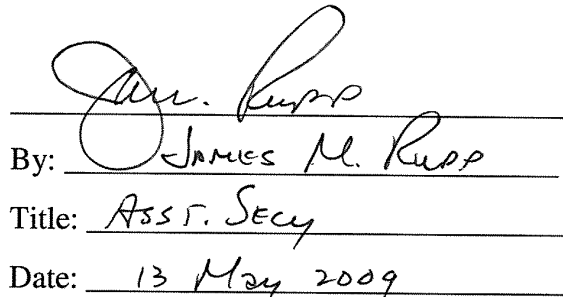 Jam. Rupp
By: James M. Rupp
Title: Asst. Secy
Date: 13 May 2009